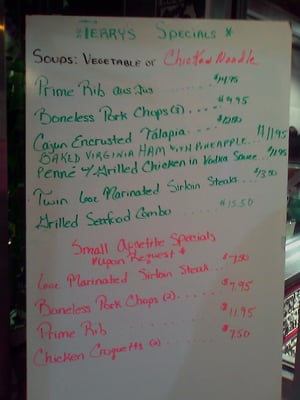 *TERRY'S SPECIALS*
SOUPS: VEGETABLE or Chicken Noodle
Prime Rib aus Jus $14.95
Boneless Pork Chops (2) .... $9.95
Cajun Encrusted Talapia .... $10.50
BAKED VIRGINIA HAM WITH PINEAPPLE... $11.95
Penne w/ Grilled Chicken in Vodka Sauce.. $11.95
Twin 6oz Marinated Sirloin Steaks... $13.50
Grilled Seafood Combo ..... $15.50
Small Appetite Specials
*Upon Request*
6oz Marinated Sirloin Steak... $7.50
Boneless Pork Chops (2)...... $7.95
Prime Rib ........ $11.95
Chicken Croquetts (2) ...... $7.50